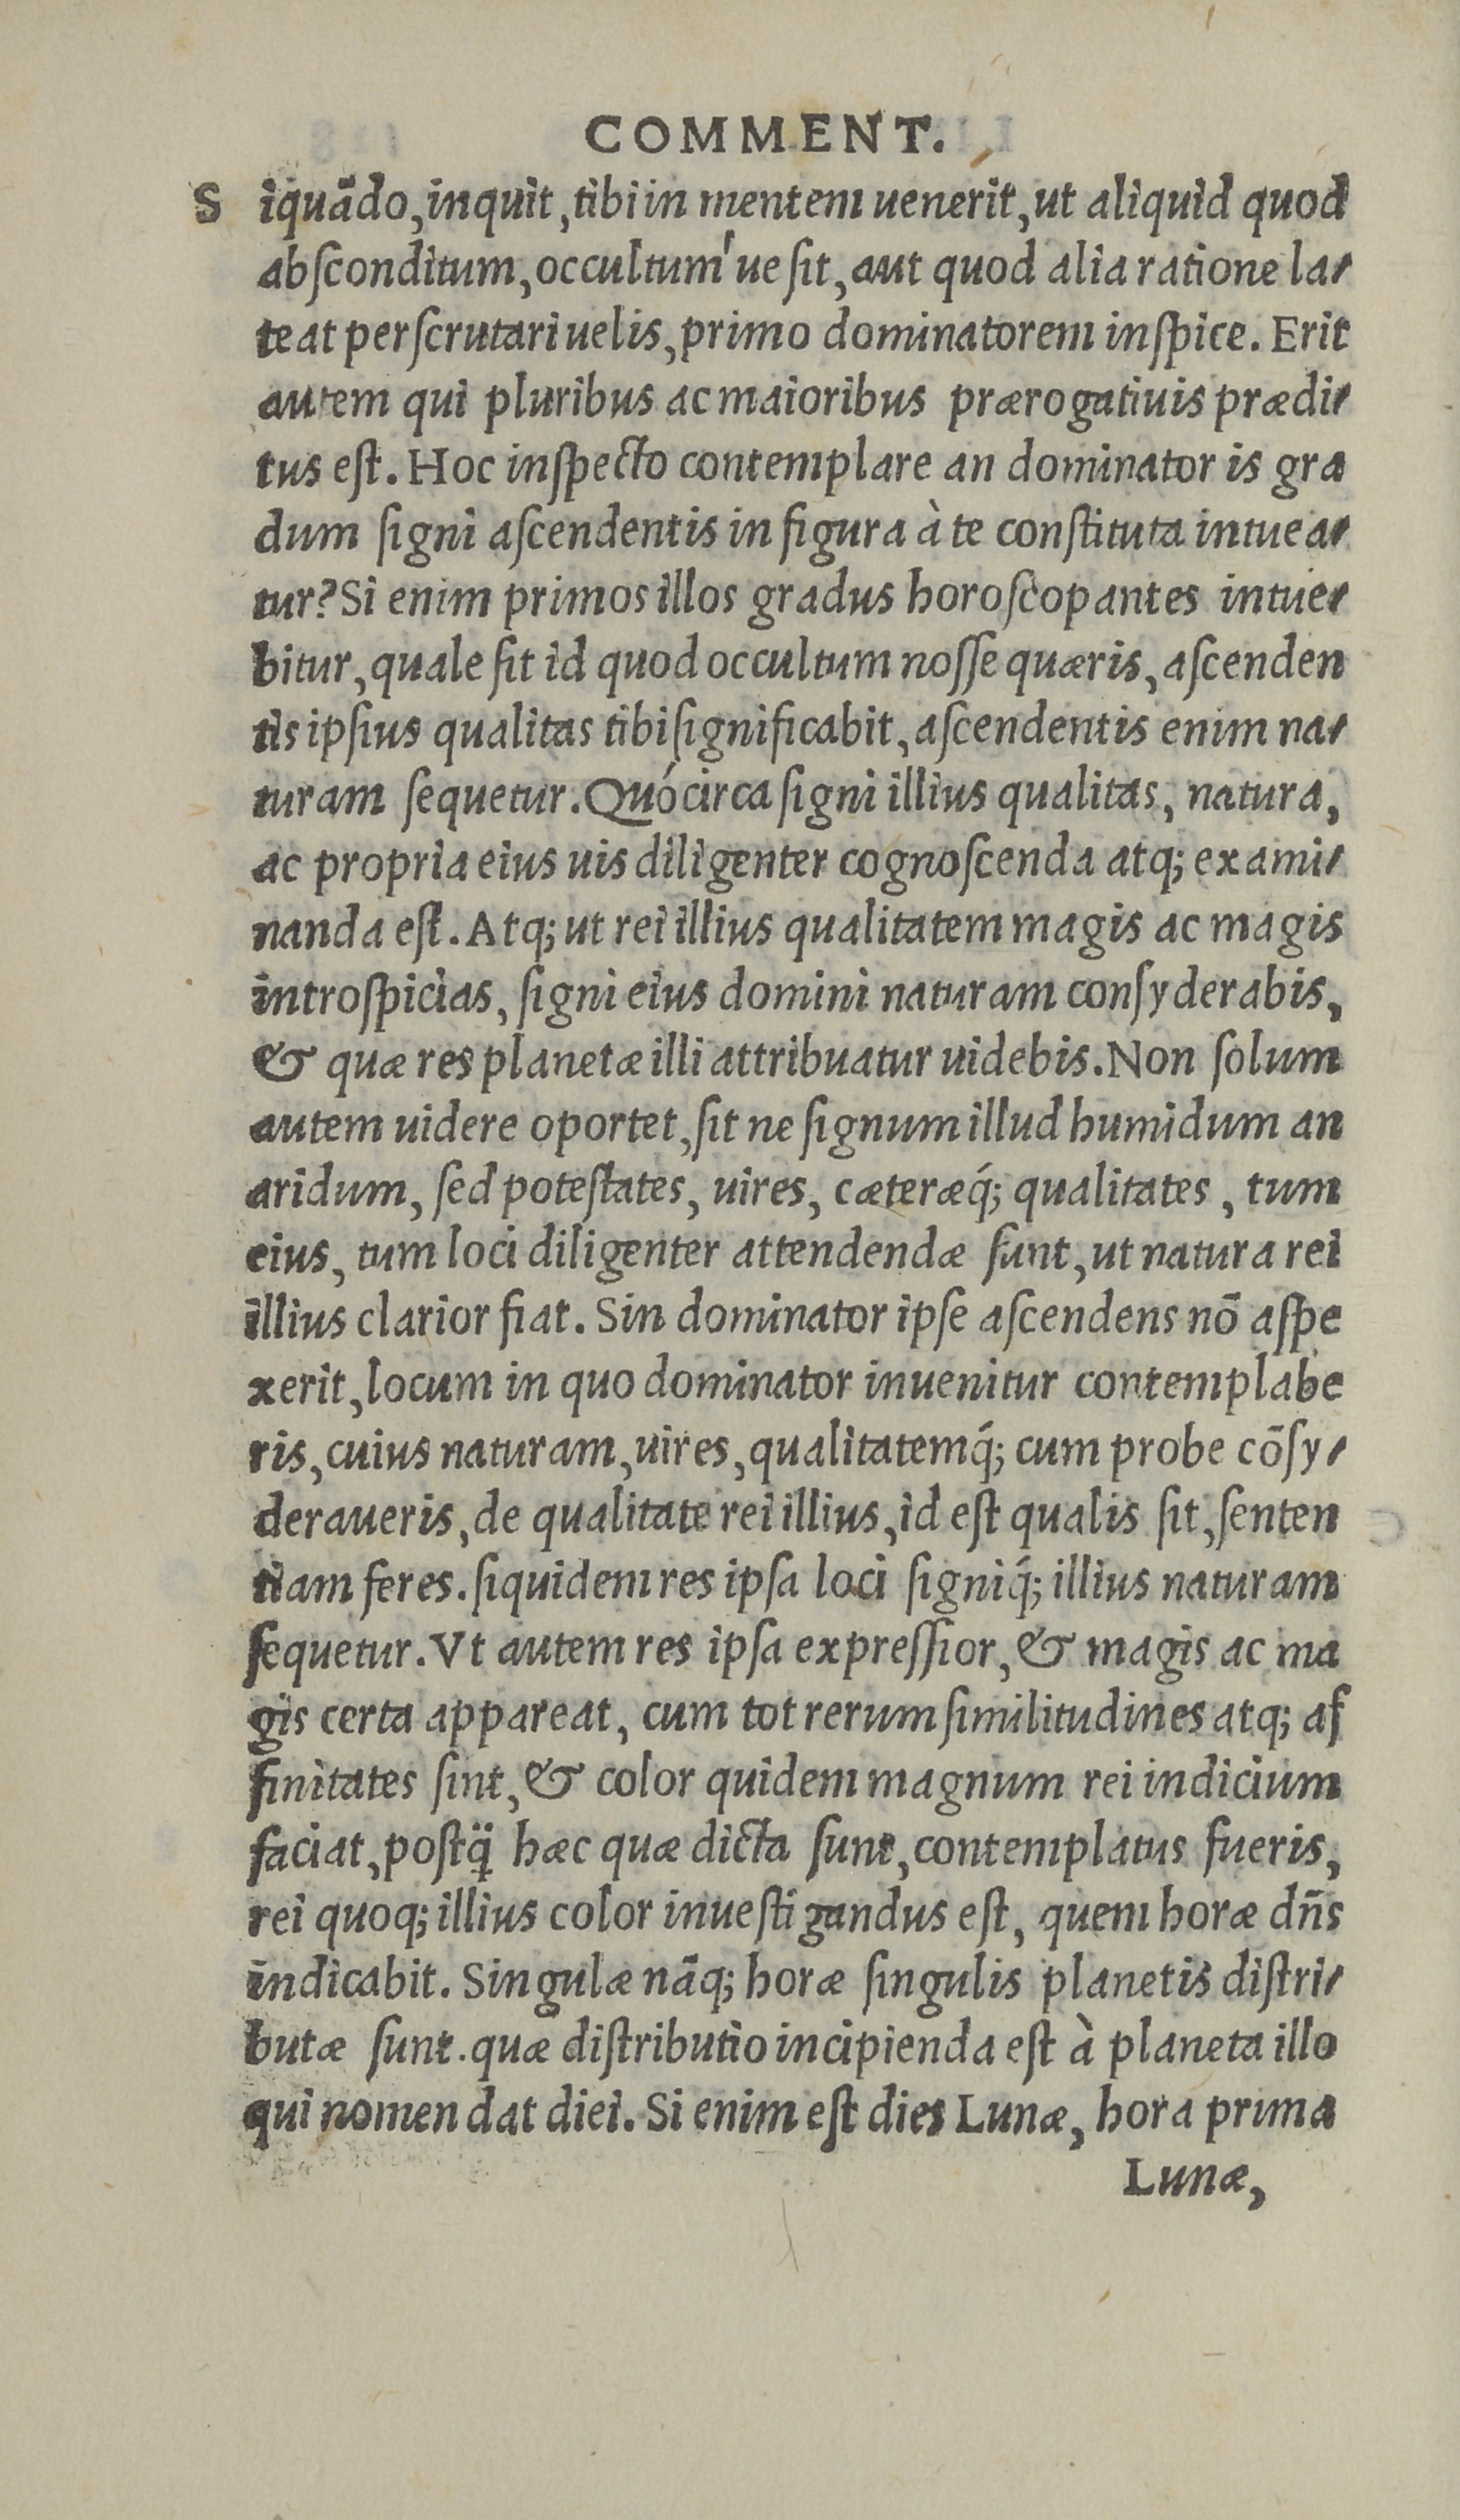 COMMENT.
S iquādo, inquit, tibi in mentem uenerit, ut aliquid quod
abſconditum, occultum'ue ſit, aut quod alia ratione la-
teat perſcrutari uelis, primo dominatorem inſpice. Erit
autem qui pluribus ac maioribus prærogatiuis prædi-
tus eſt. Hoc inſpecto contemplare an dominator is gra
dum ſigni aſcendentis in figura à te conſtituta intuea-
tur? Si enim primos illos gradus horoſcopantes intue-
bitur, quale ſit id quod occultum noſſe quæris, aſcenden
tis ipſius qualitas tibi ſignificabit, aſcendentis enim na-
turam ſequetur. Quócirca ſigni illius qualitas, natura,
ac propria eius uis diligenter cognoſcenda atq; exami-
nanda eſt. Atq; ut rei illius qualitatem magis ac magis
introſpicias, ſigni eius domini naturam conſyderabis,
& quæ res planetæ illi attribuatur uidebis. Non ſolum
autem uidere oportet, ſit ne ſignum illud humidum an
aridum, ſed poteſtates, uires, cæteræq́; qualitates, tum
eius, tum loci diligenter attendendæ ſunt, ut natura rei
illius clarior fiat. Sin dominator ipſe aſcendens nō aſpe
xerit, locum in quo dominator inuenitur contemplabe
ris, cuius naturam, uires, qualitatemq́; cum probe cōſy-
deraueris, de qualitate rei illius, id eſt qualis ſit, ſenten
tiam feres. ſiquidem res ipſa loci ſigniq́; illius naturam
ſequetur. Vt autem res ipſa expreſſior, & magis ac ma
gis certa appareat, cum tot rerum ſimilitudines atq; af
finitates ſint, & color quidem magnum rei indicium
faciat, poſtq̈ hæc quæ dicta ſunt, contemplatus fueris,
rei quoq; illius color inueſtigandus eſt, quem horæ dn̄s
indicabit. Singulæ nāq; horæ ſingulis planetis diſtri-
butæ ſunt. quæ diſtributio incipienda eſt à planeta illo
qui nomen dat diei. Si enim eſt dies Lunæ, hora prima
Lunæ,